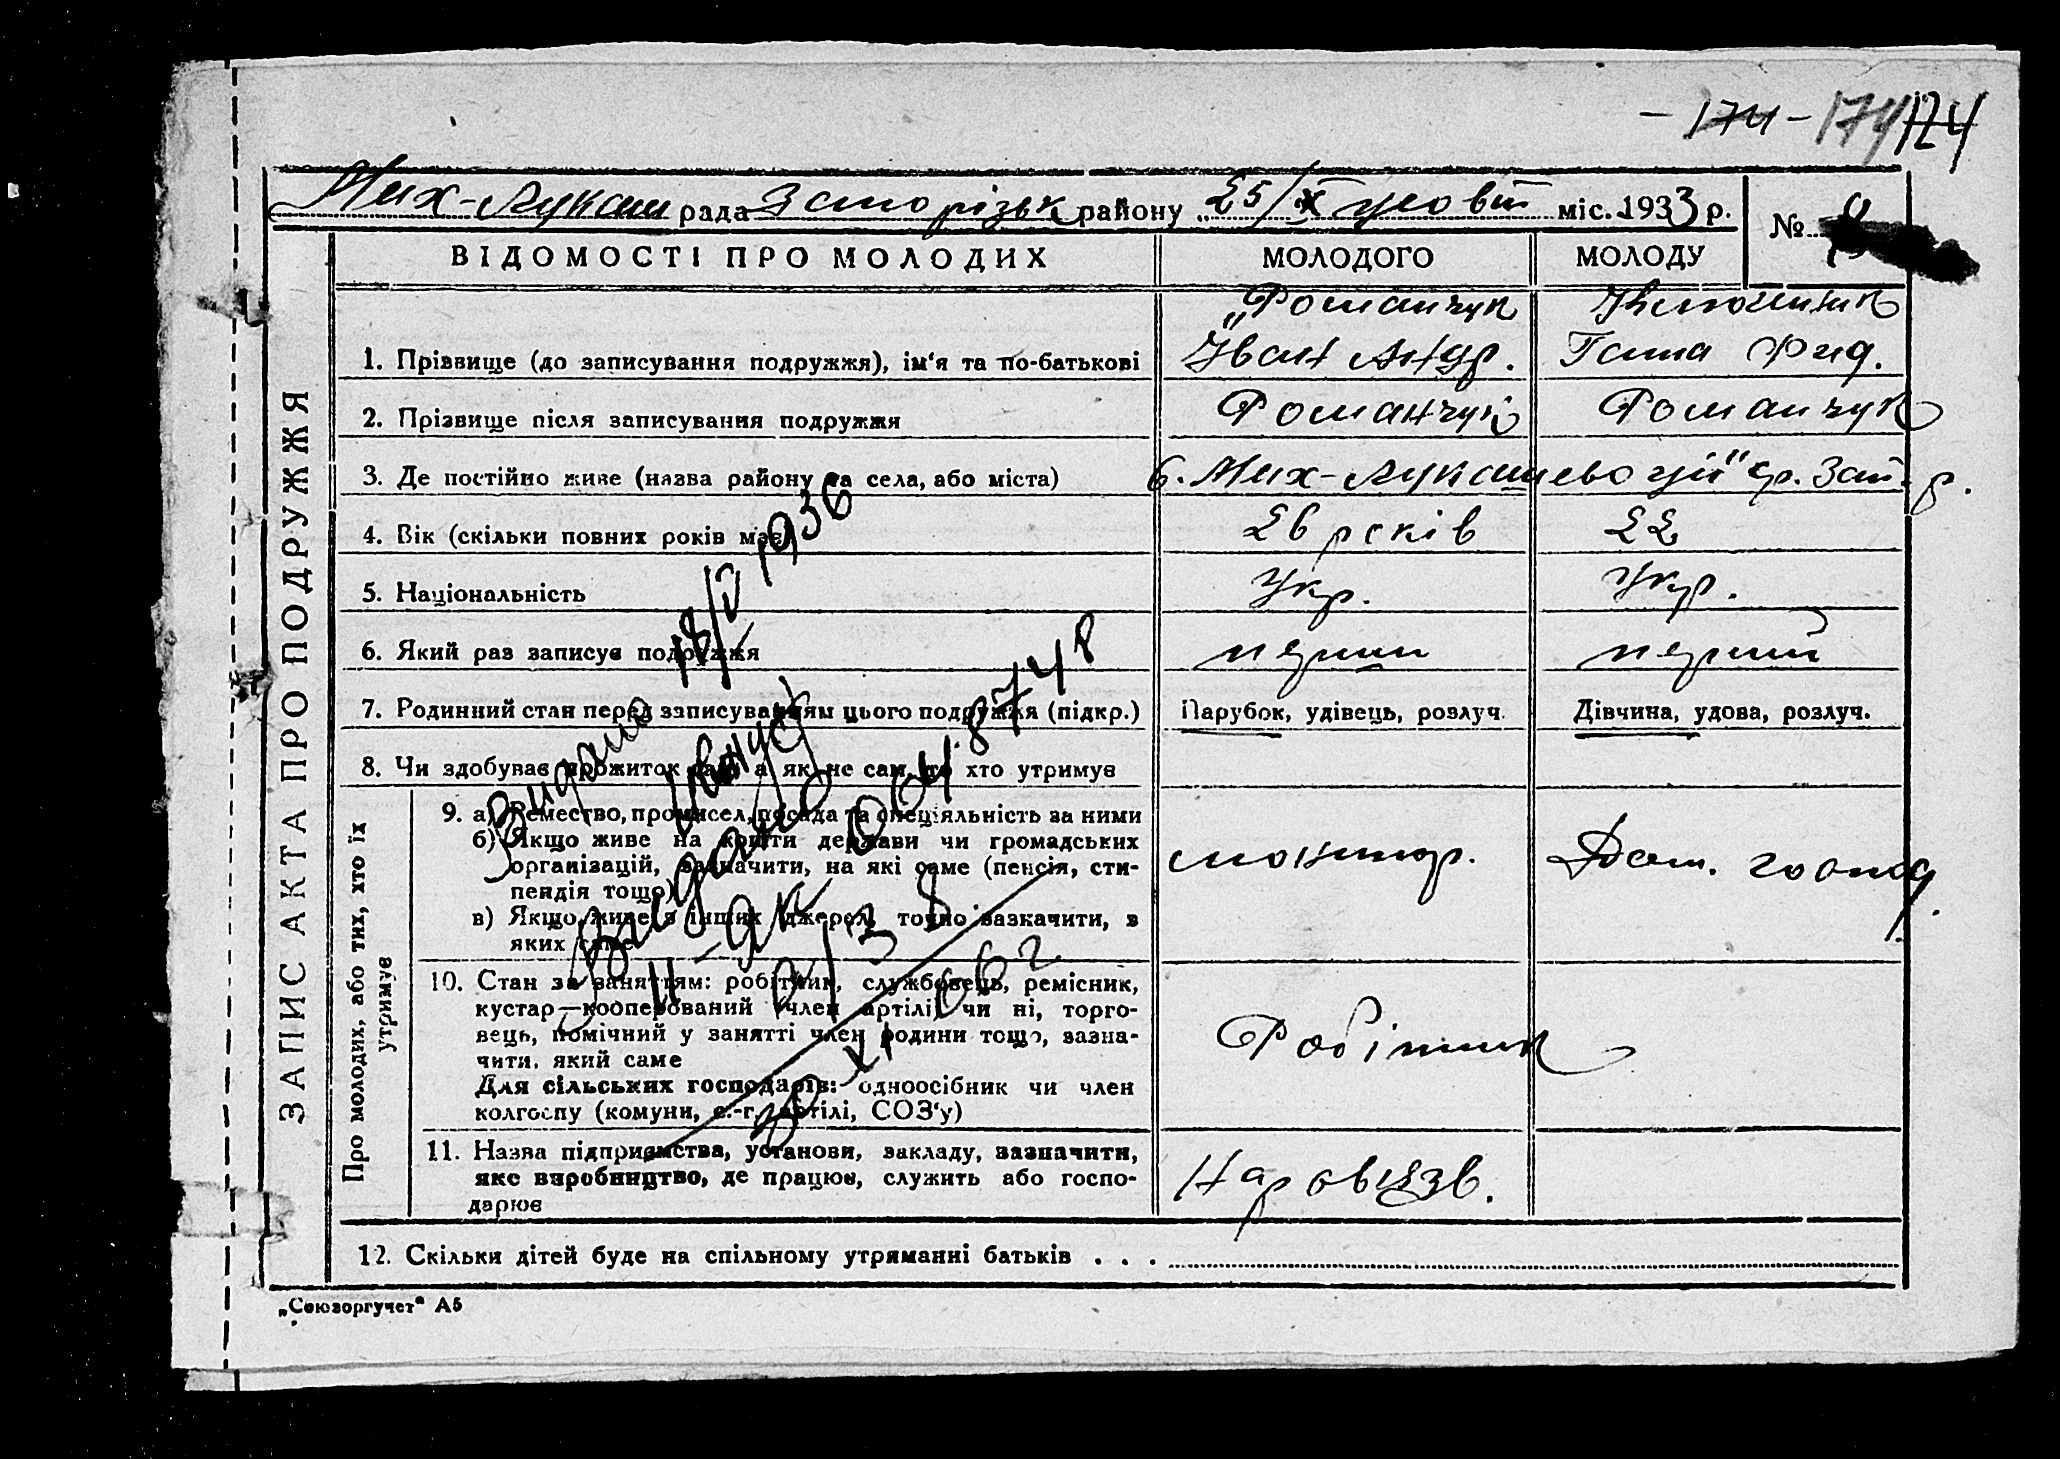 - 174 - 174 124
Мих-Лукаш рада Запорізьк району „25/X жовт міс. 1933 р.
№
ВІДОМОСТІ ПРО МОЛОДИХ МОЛОДОГО МОЛОДУ
„Романчук
1. Прізвище (до записування подружжя), ім'я та по-батькові Іван Андр. Ганна Фид.
2. Прізвище після записування подружжя Романчук Романчук
3. Де постійно живе (назва району та села, або міста) Мих-Лукашево
4. Вік (скільки повних років має) 26 років 22
5. Національність Укр. Укр.
6. Який раз записує подружжя перший
7. Родинний стан перед записуванням цього подружжя (підкр.) Парубок, удівець, розлуч. Дівчина, удова, розлуч.
8. Чи здобував прожиток сам, а як не сам, то хто утримує
ЗАПИС АКТА ПРО ПОДРУЖЖЯ
Про молодих, або тих, хто їх утримує
9. а) Ремество, промисел, посада та спеціяльність за ними
б) Якщо живе на кошти держави чи громадських
організацій, зазначити, на які саме (пенсія, сти-
пендія тощо)
в) Якщо живе з інших джерел, точно зазкачити, з
яких саме
монтор. Дом. господ.
10. Стан за заняттям: робітник, службовець, ремісник,
кустар—кооперований член артілі чи ні, торго-
вець, помічний у занятті член родини тощо, зазна-
чити, який саме
Для сільських господарів: одноосібник чи член
колгоспу (комуни, с.-г. артілі, СОЗ'у)
Робітник
11. Назва підприємства, установи, закладу, зазначити,
яке виробництво, де працює, служить або госпо-
дарює
12. Скільки дітей буде на спільному утриманні батьків . . .
„Союзоргучет" А5
Видано 18/V 1936
Видано
004.8748